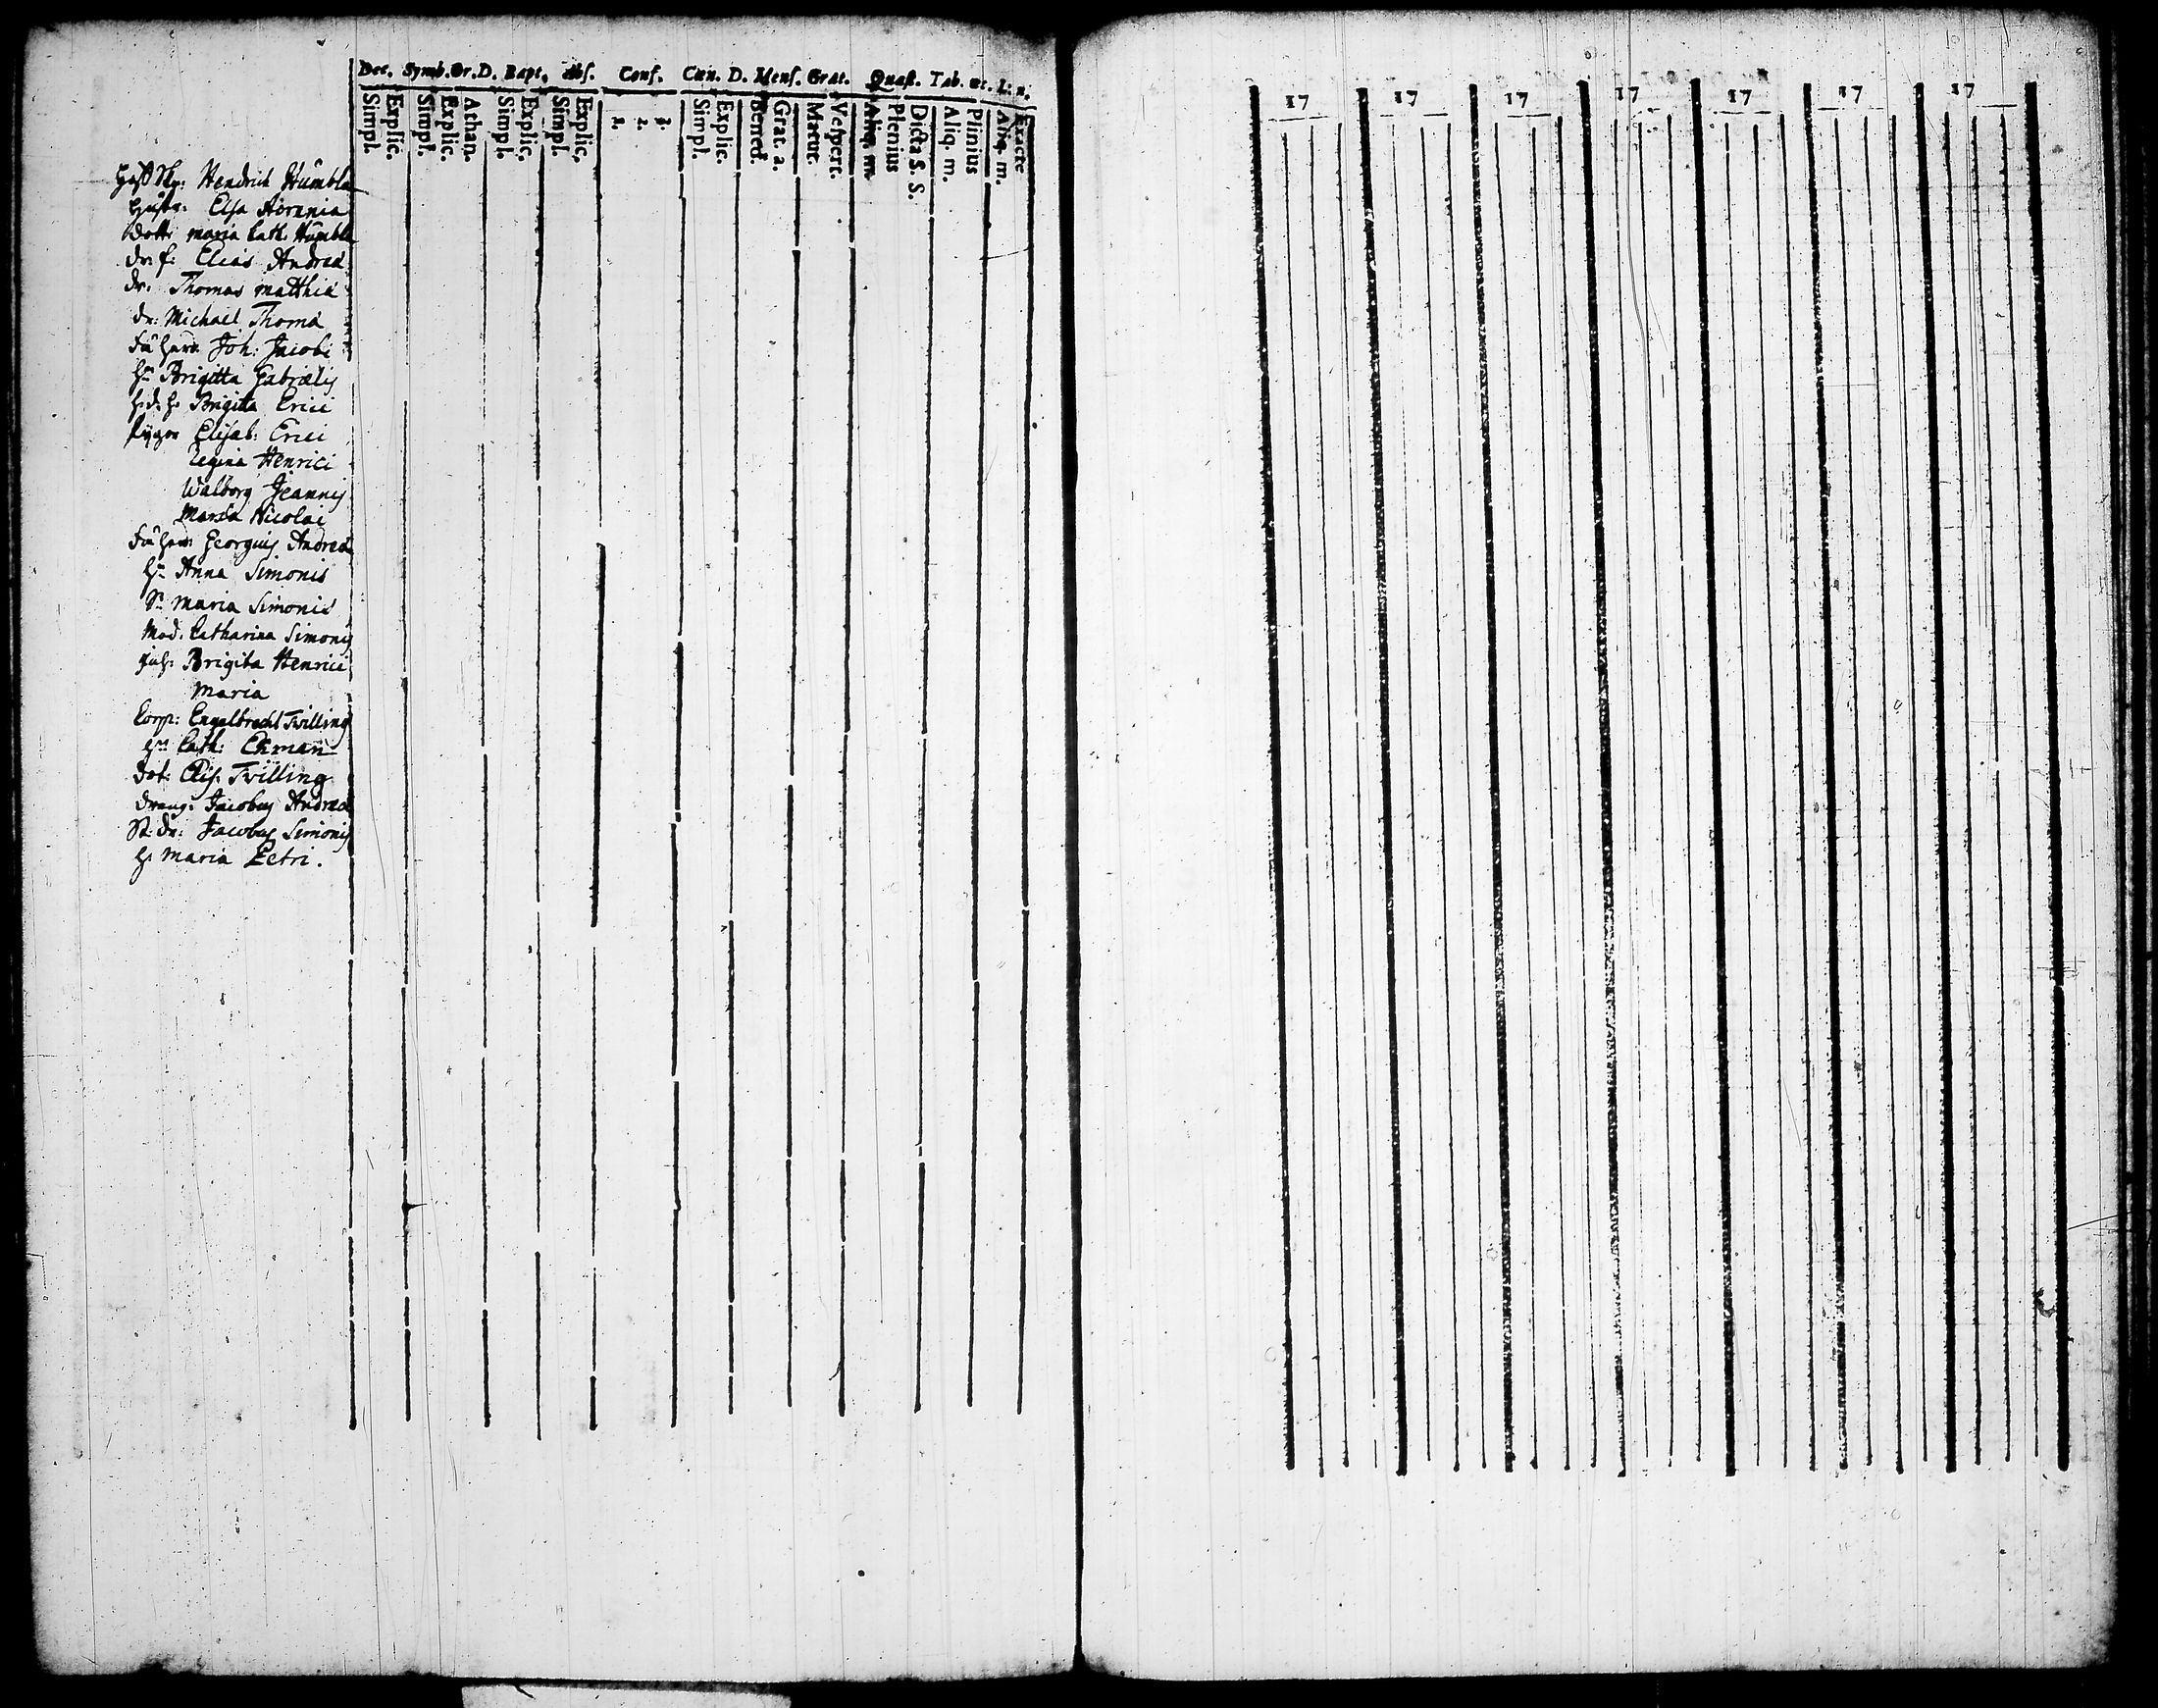 Dec. Symb. Or. D. Bapt. Abs. Conf. Cœn. D. Mens. Grat. Quæst. Tab. œc. L: n.
Simpl. Explic. Simpl. Explic. Athan. Simpl. Explic. Simpl. Explic. 1. 2. 3. Simpl. Explic. Bened. Grat. a. Matut. Vespert. Aliq. m Plenius Dicta S. S. Aliq. m. Plinius Aliq. m. Exacte
17 17 17 17 17 17 17
Hendrich Humbla
Hustr: Elsa
Dott: maria Cath: Humbla
Elias Andreæ
dr. Thomas Matthiæ
dr: Michael Thomæ
Joh: Jacobi
Brigitta Gabrielis
Brigitta Erici
Elisab: Erici
Regina Henrici
Walborg Joannis
Maria Nicolai
Georgius Andreæ
Anna Simonis
Maria Simonis
Mod: Catharina Simonis
Brigita Henrici
Maria
Corp: Engelbrecht Twilling
Cath: Ekman
Dot: Elis: Twilling
Dräng: Jacobus Andreæ
Jacobus Simonis
H: Maria Petri.